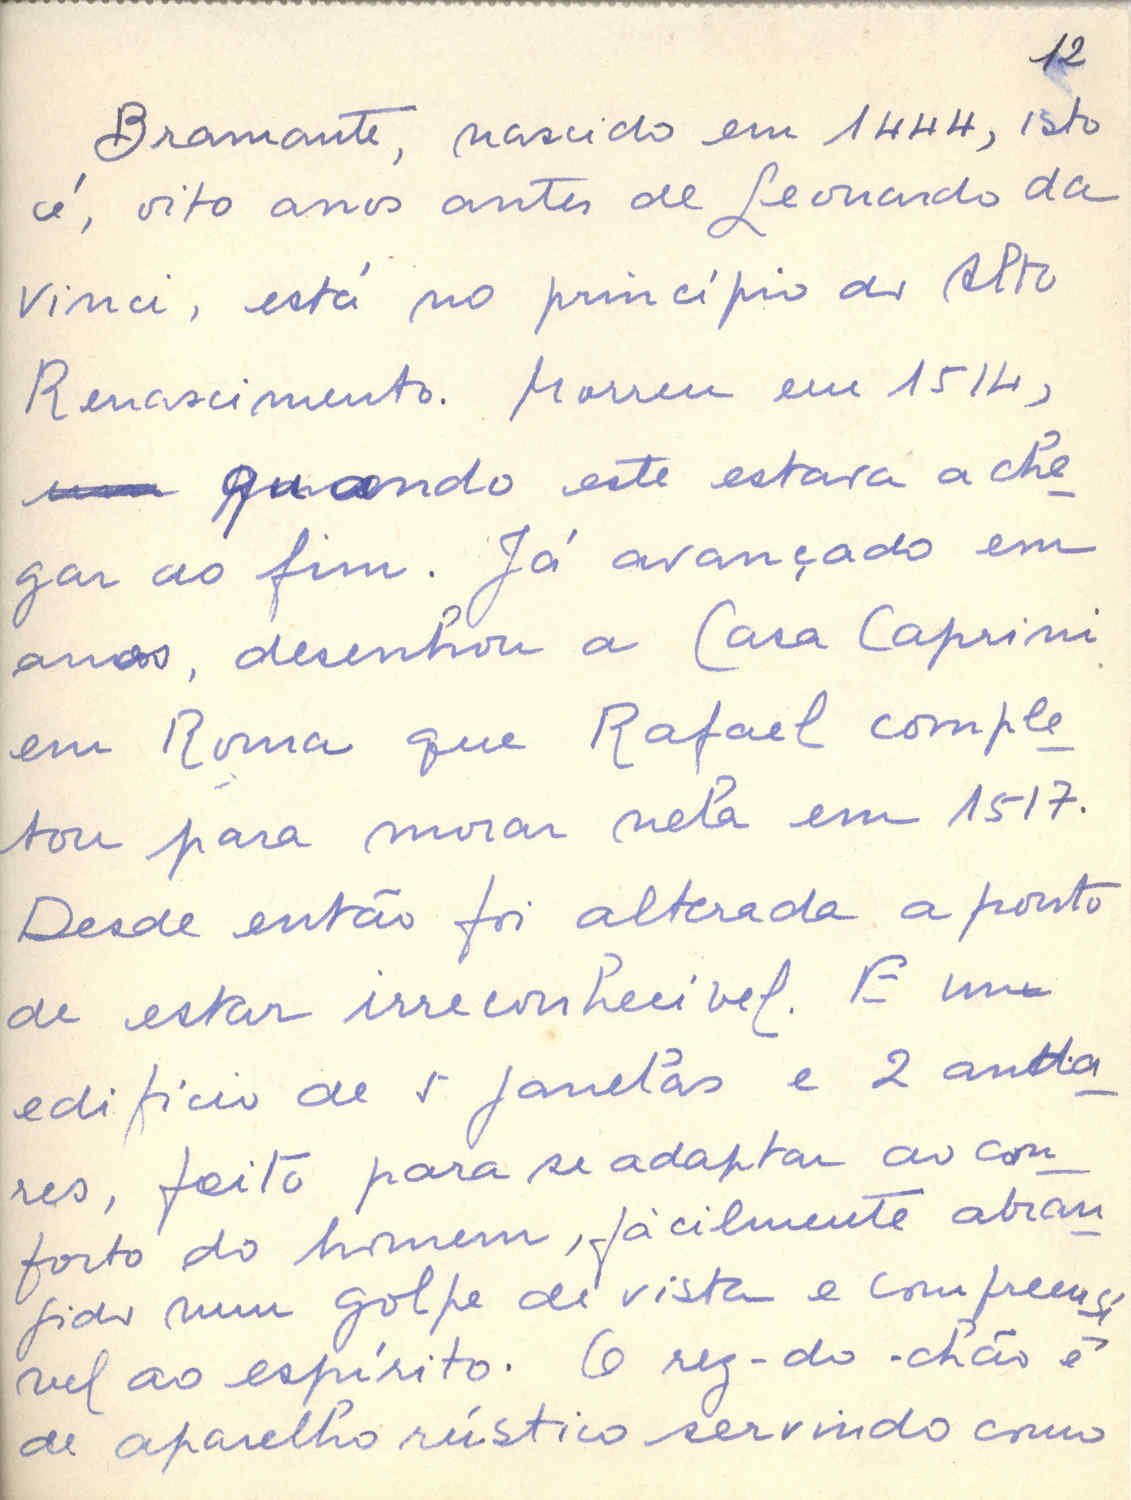 12
Bramante, nascido em 1444, isto
é, oito anos antes de Leonardo da
Vinci, está no princípio do Alto
Renascimento. Morreu em 1514,
quando este estava a che-
gar ao fim. Já avançado em
anos, desenhou a Casa Caprini
em Roma que Rafael comple-
tou para morar nela em 1517.
Desde então foi alterada a ponto
de estar irreconhecível. E um
edifício de 5 janelas e 2 anda-
res, feito para se adaptar ao con-
forto do homem, fàcilmente abran-
gido num golpe de vista e compreensí
vel ao espírito. O rez-do-chão é
de aparelho rústico servindo como